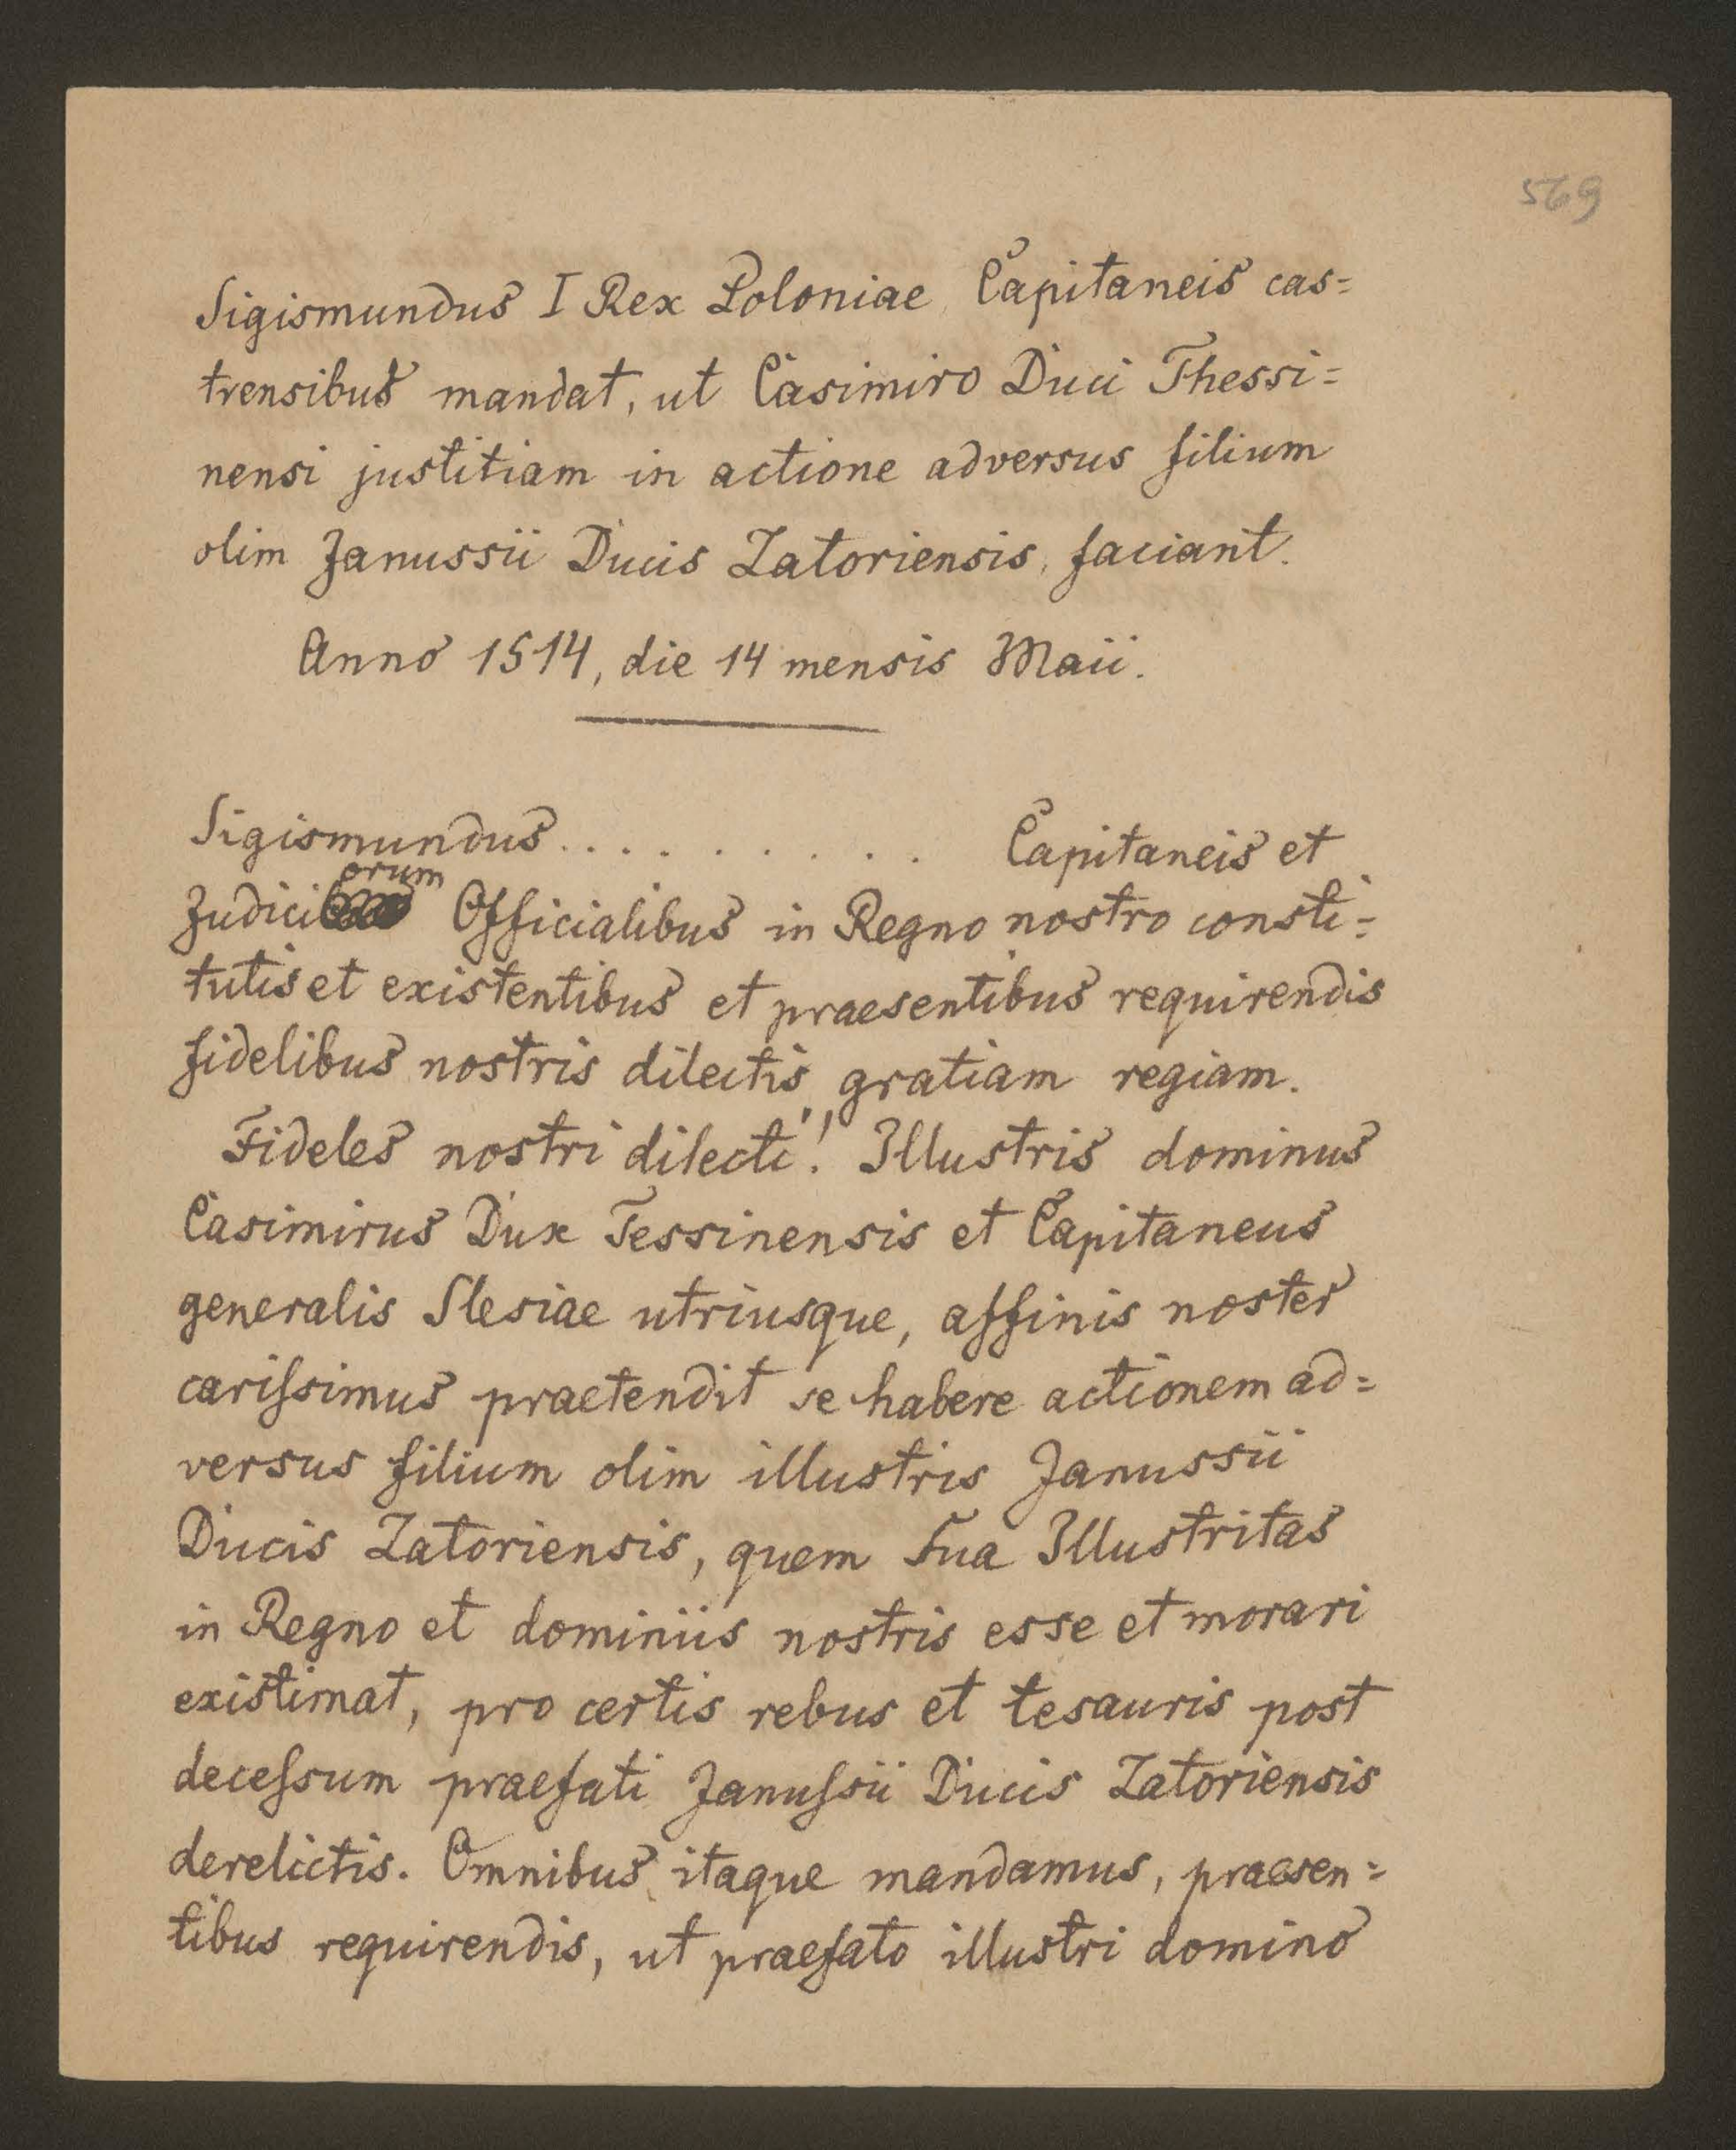 569
Sigismundus I Rex Poloniae Capitaneis cas=
trensibus mandat, ut Casimiro Duci Thessi=
nensi justitiam in actione adversus filium
olim Janussii Ducis Zatoriensis, faciant.
Anno 1514, die 14 mensis Maii.
Sigismundus . . . . . . . . . . Capitaneis et
Judiciorum Officialibus in Regno nostro consti=
tutis et existentibus et praesentibus requirendis
fidelibus nostris dilectis gratiam regiam.
Fideles nostri dilecti! Illustris dominus
Casimirus Dux Tessinensis et Capitaneus
generalis Slesiae utriusque, affinis noster
carissimus praetendit se habere actionem ad=
versus filium olim illustris Janussii
Ducis Zatoriensis, quem Sua Illustritas
in Regno et dominiis nostris esse et morari
existimat, pro certis rebus et tesauris post
decessum praefati Janussii Ducis Zatoriensis
derelictis. Omnibus itaque mandamus, praesen=
tibus requirendis, ut praefato illustri domino